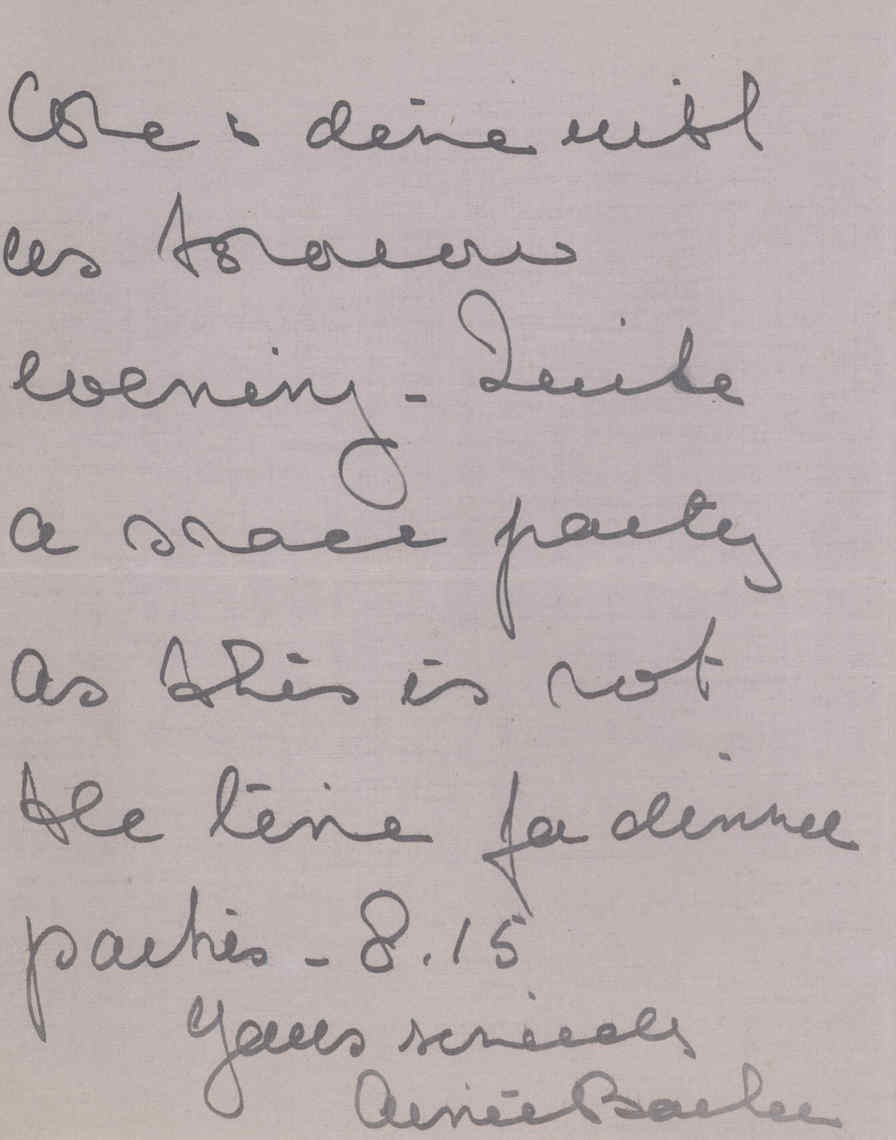 Come & dine with
us tomorrow
evening - Quite
a small party
as this is not
the time for dinner
parties - 8.15
Yours sincerely
Aimée